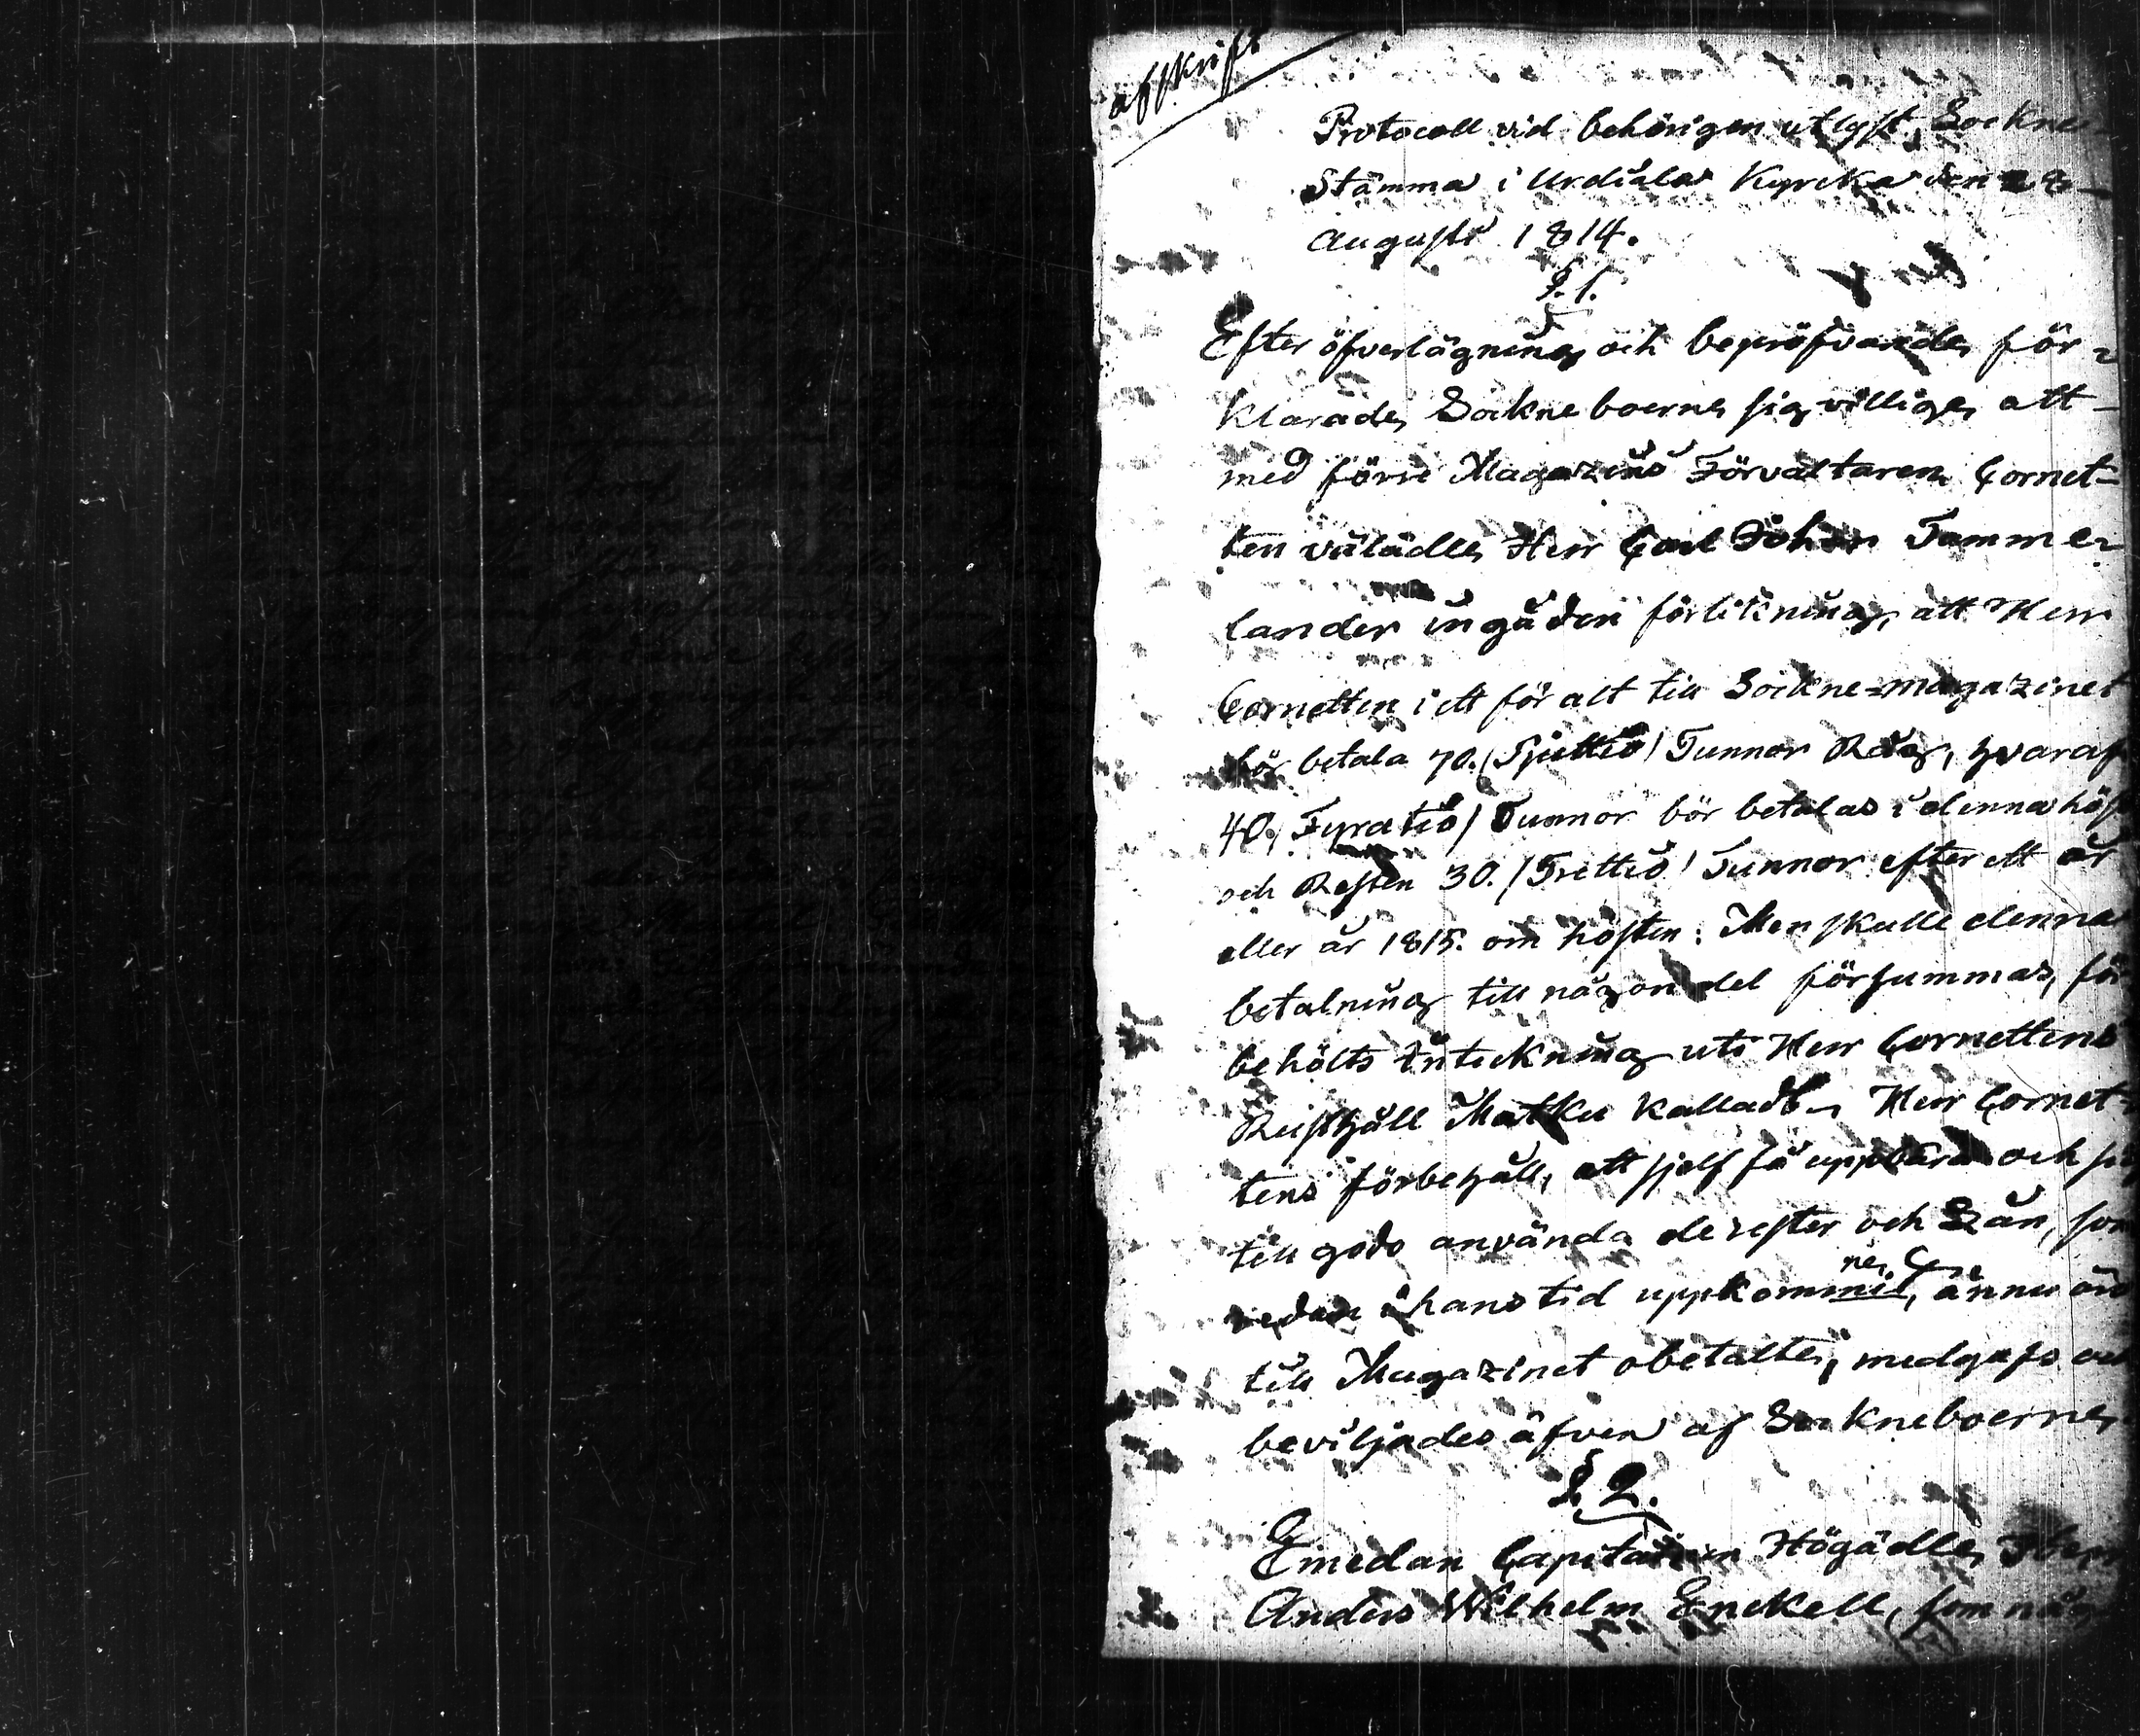 afskrift
Protocoll vid behörigen utlyst, Sockne-
Stämma i Urdiala Kyrcka den 28
Augusti 1814.
§. 1.
Efter öfverlägning och bepröfvande för-
klarade Sockneboerne sig villige att
med förre Magazins Förvaltaren Cornet-
ten välädle Herr Carl Johan Tamme-
lander ingå den förlikning, att Herr
Cornetten i ett för alt till Sockne-magazinet
bör betala 70. /Sjuttio/ Tunnor Råg, hvaraf
40. /Fyratio/ Tunnor bör betalas i denna höst
och Resten 30. /Trettio/ Tunnor efter ett år
eller år 1815. om hösten: Men skulle denna
betalning till någon del försummas, för
behölts inteckning uti Herr Cornettens
Rusthåll Matku kalladt. Herr Cornet-
tens förbehåll, att sjelf få uppbära och sig
till godo använda de rester och Lån, som
redan i hans tid uppkommit, ne ännu äro
till Magazinet obetalte, medgafs och
beviljades äfven af Sockneboerne
§. 2.
Emedan Capitainen Högädle Herr
Anders Wilhelm Enckell, som